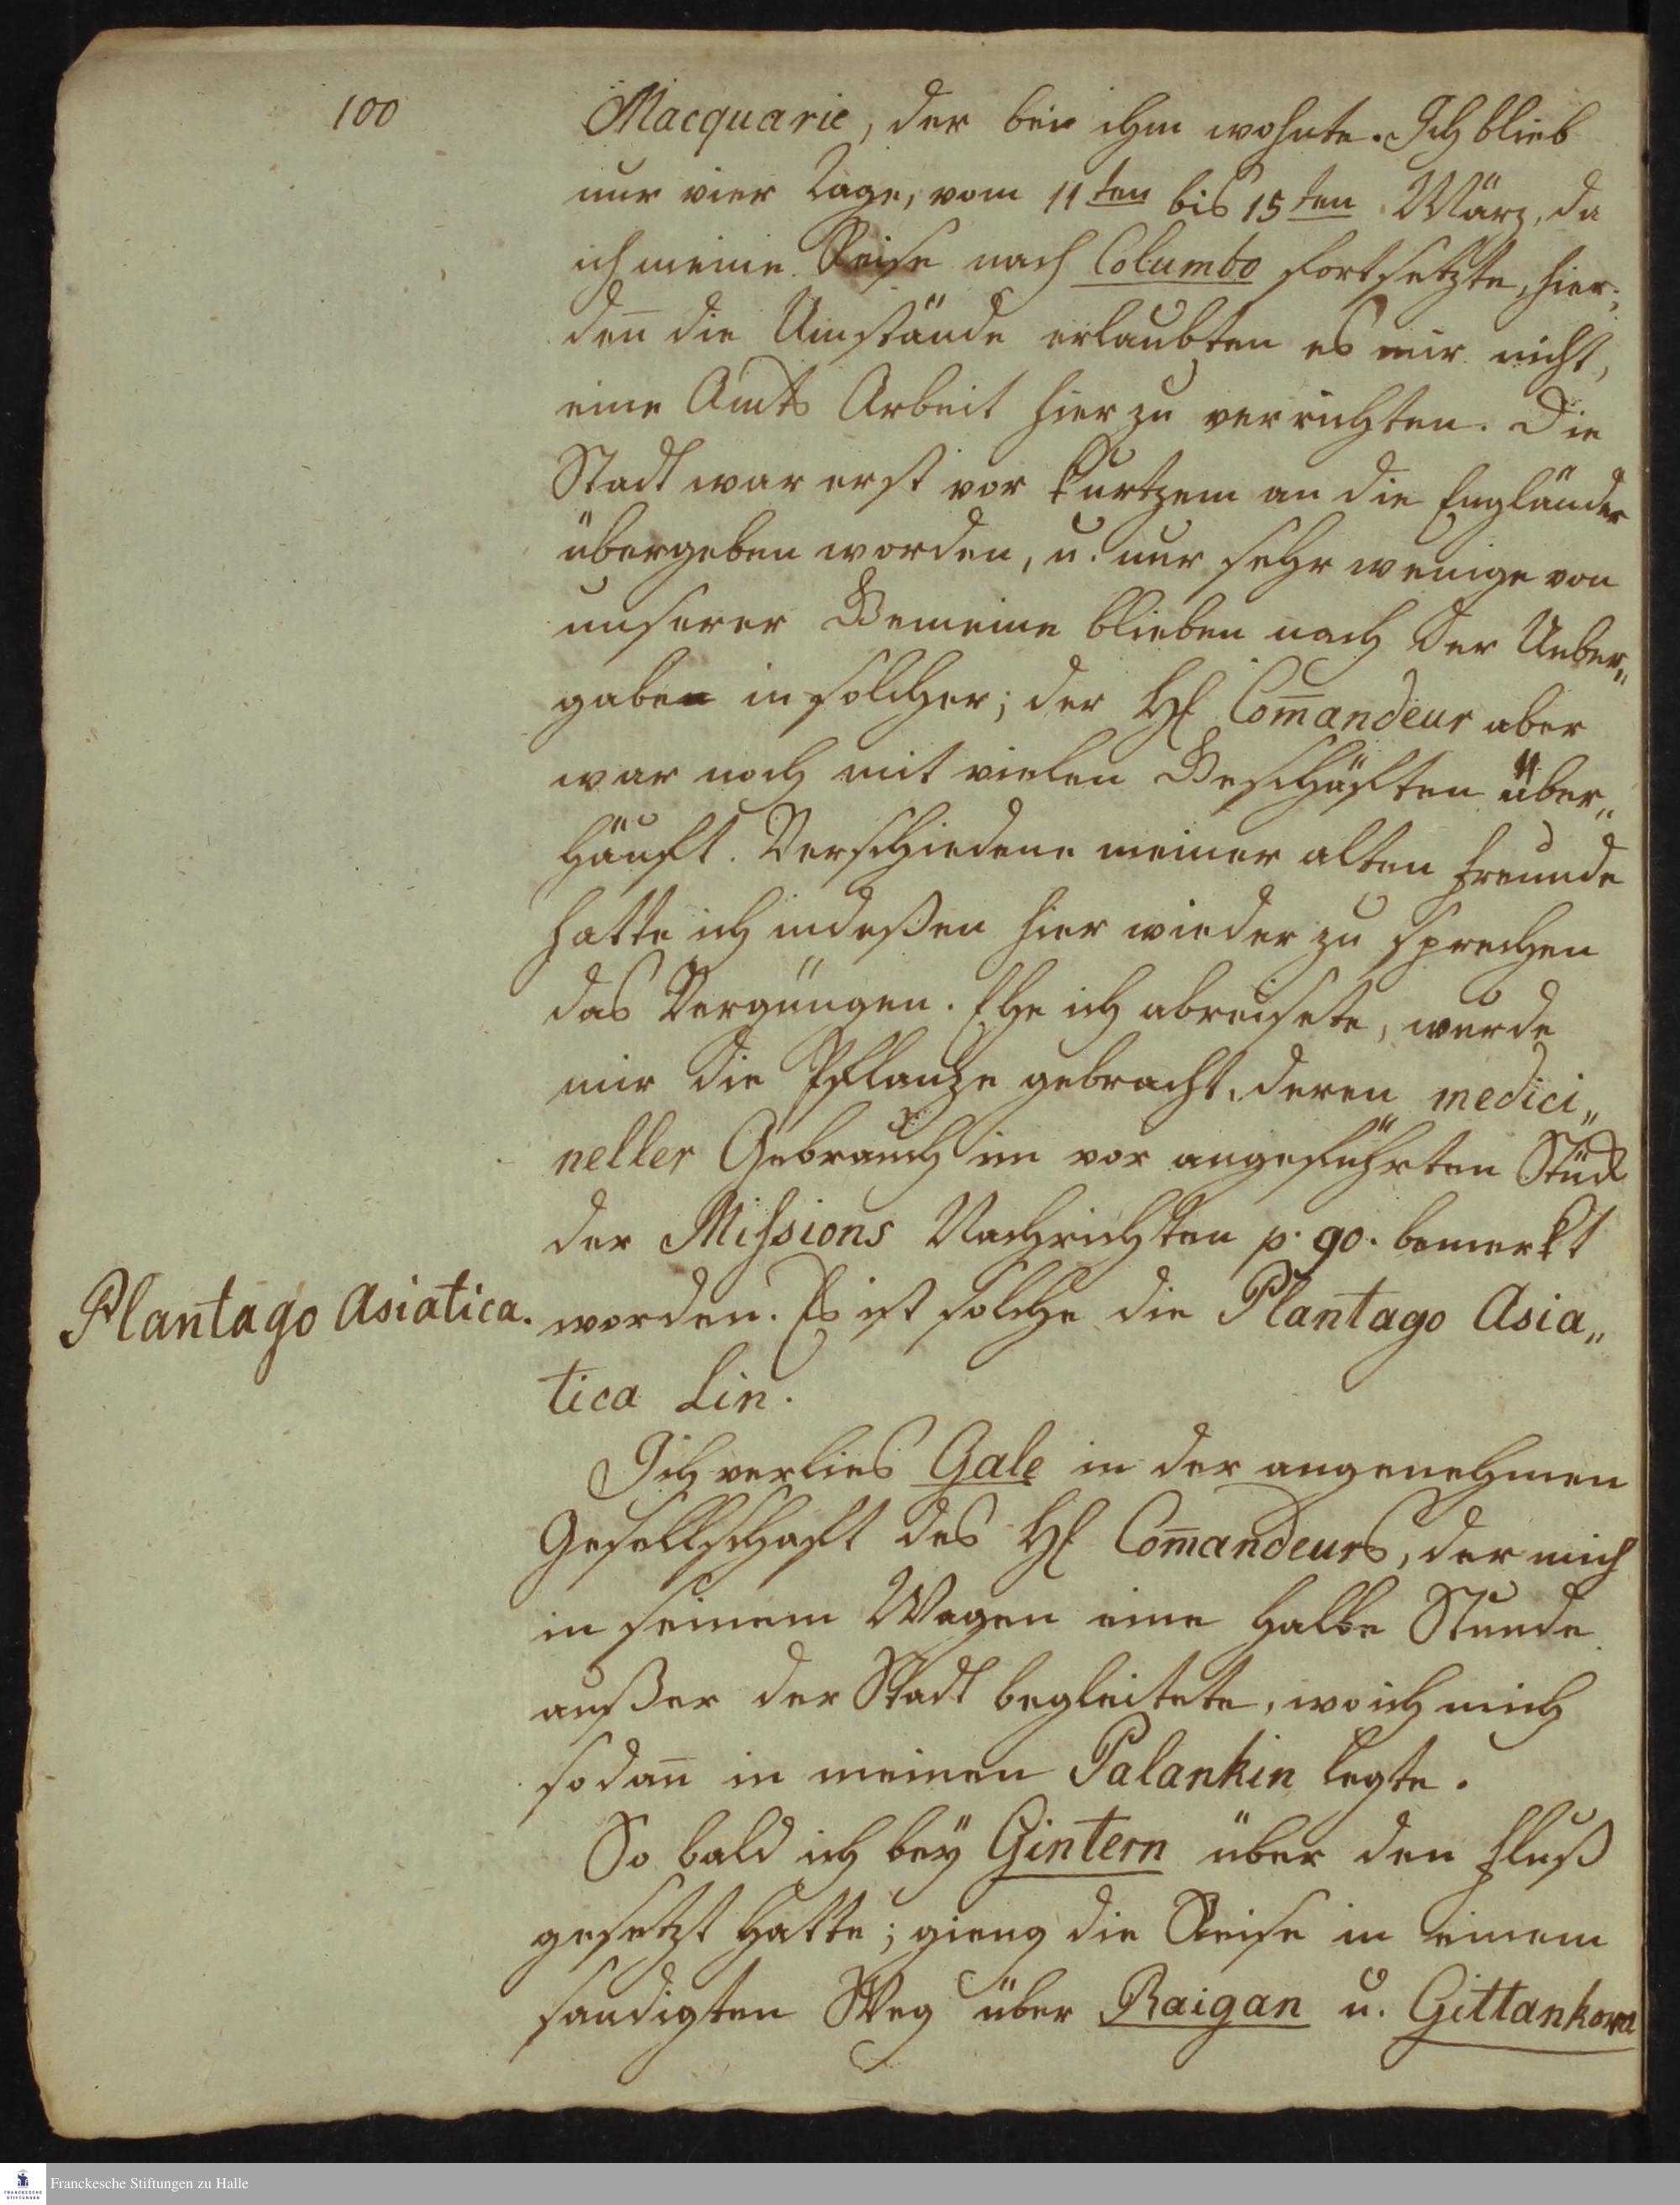 100
Macquarie, der bei ihm wohnte. Ich blieb
nur vier Tage, vom 11ten bis 15ten März, da
ich meine Reise nach Columbo fortsetzte, hier;
den̅ die Umstände erlaubten es mir nicht,
eine Amts Arbeit hier zu verrichten. Die
Stadt war erst vor kurtzem an die Engländer
übergeben worden, u. nur sehr wenige von
unserer Gemeine blieben nach der Ueber„
gabe in solcher; der H Com̅andeur aber
war noch mit vielen Geschäften über„
häuft. Verschiedene meiner alten Freunde
hatte ich indeßen hier wieder zu sprechen
das Vergnügen. Ehe ich abreisete, wurde
mir die Pflanze gebracht, deren medici„
neller Gebrauch im vor angeführten Stück
der Missions Nachrichten p. 90. bemerkt
Plantago Asiatica.
worden. Es ist solche die Plantago Asia„
tica Lin.
Ich verlies Gale in der angenehmen
Gesellschaft des H Com̅andeurs, der mich
in seinem Wagen eine halbe Stunde
außer der Stadt begleitete, wo ich mich
sodan̅ in meinen Palankin legte.
So bald ich bey Gintern über den Fluß
gesetzt hatte; gieng die Reise in einem
sandigten Weg über Raigan u. Gittankowa
Franckesche Stiftungen zu Halle
FRANCKESCHE
STIFTUNGEN